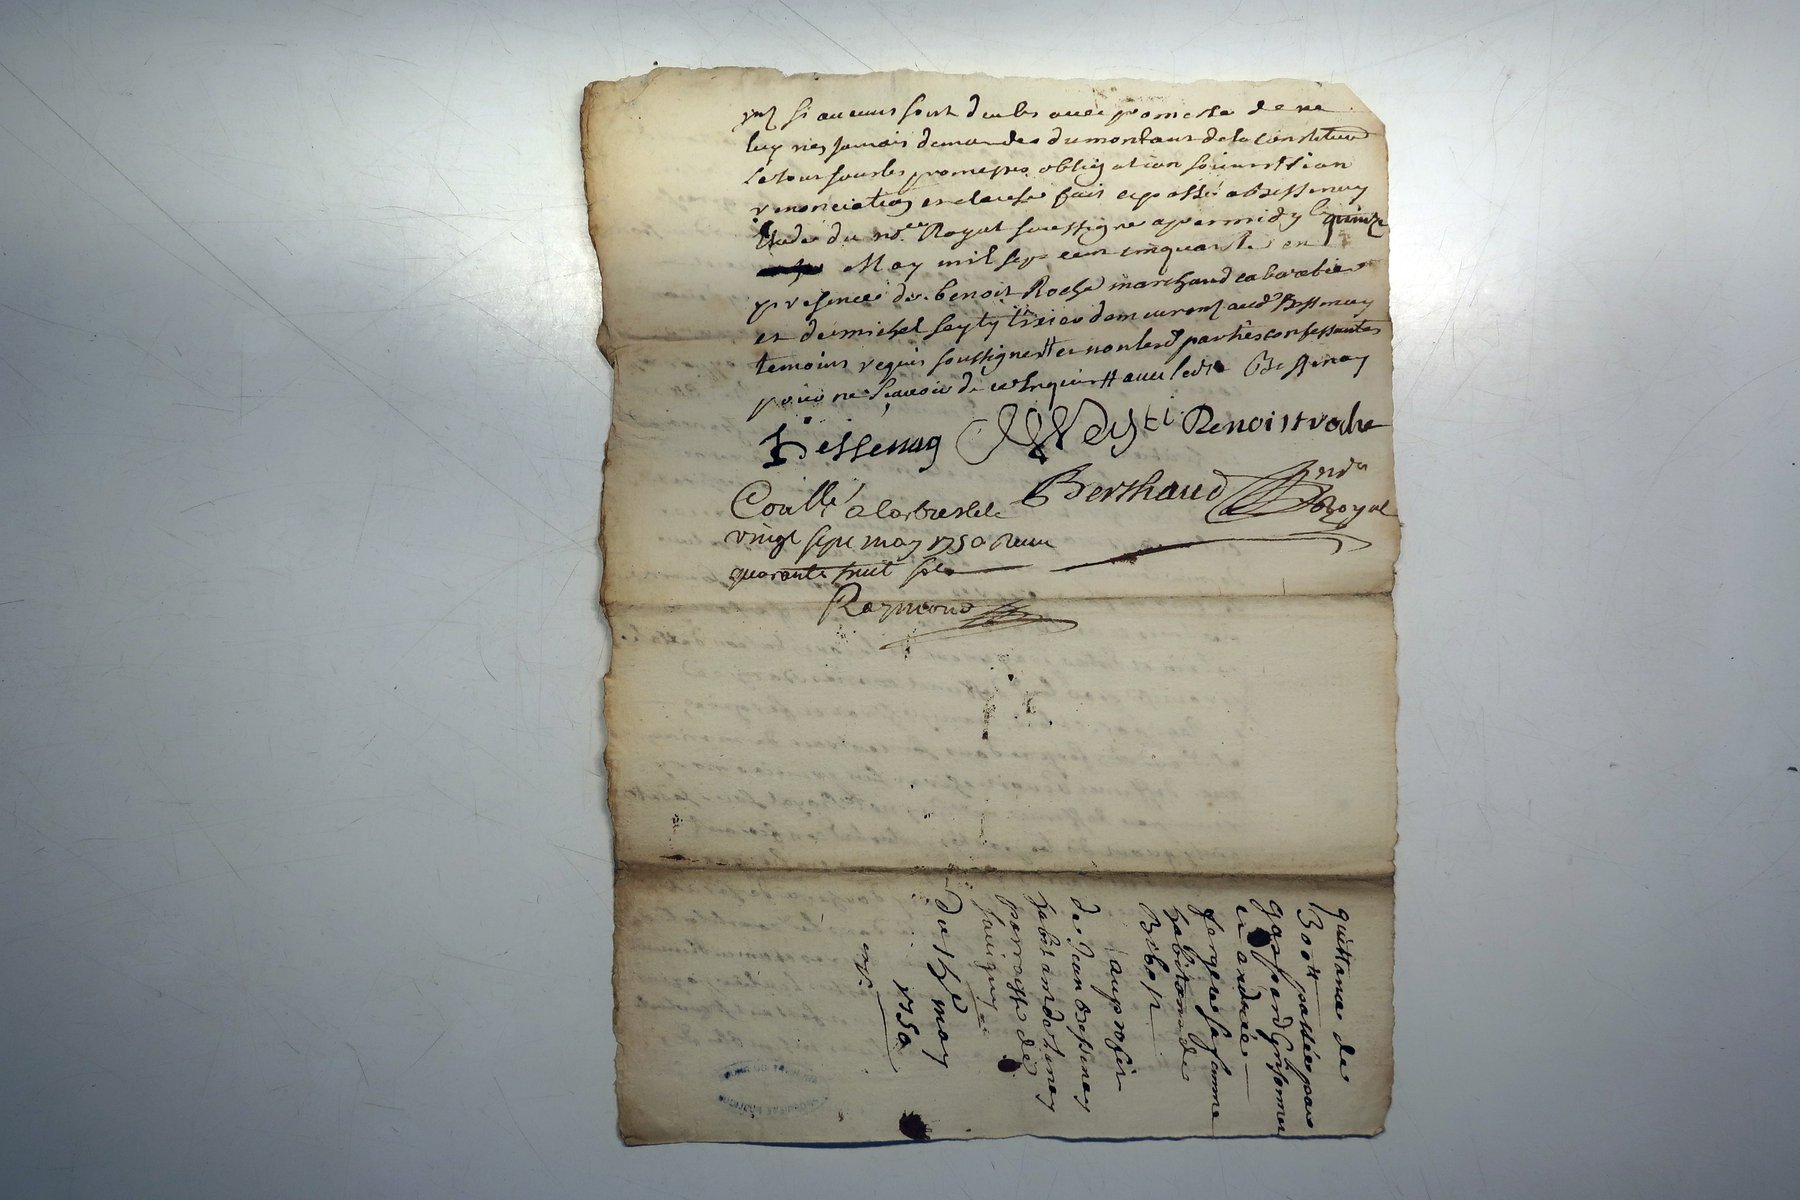 si aucuns sont deubs avec promesse de ne
luy rien jamais demander du montant de la constitution
Le tout sous les promesses obligation soumission
renonciation et clause fait et passé a Bessenay
Etude du no.re Royal soussigné apres midy le quinze
May mil sept cent cinquante en
presence de benoit Roche marchand cabaretier
et de michel seyty demeurant aud Bessenay
temoins requis soussignes et non les parties confessantes
pour ne sçavoir de ce enquis avec led Bessenay
Bessenay Benoist roche
Berthaud no.re Royal
Conllé a larbresle le
vingt sept may 1750 Recu
quarante huit sols
Raymond
quittance de
300 passée par
gaspard
et andrée
sa femme
habitans de
Bibost
au profit
de Jean Bessenay
habitant de
parroisse de
savigny
du 15e may
1750